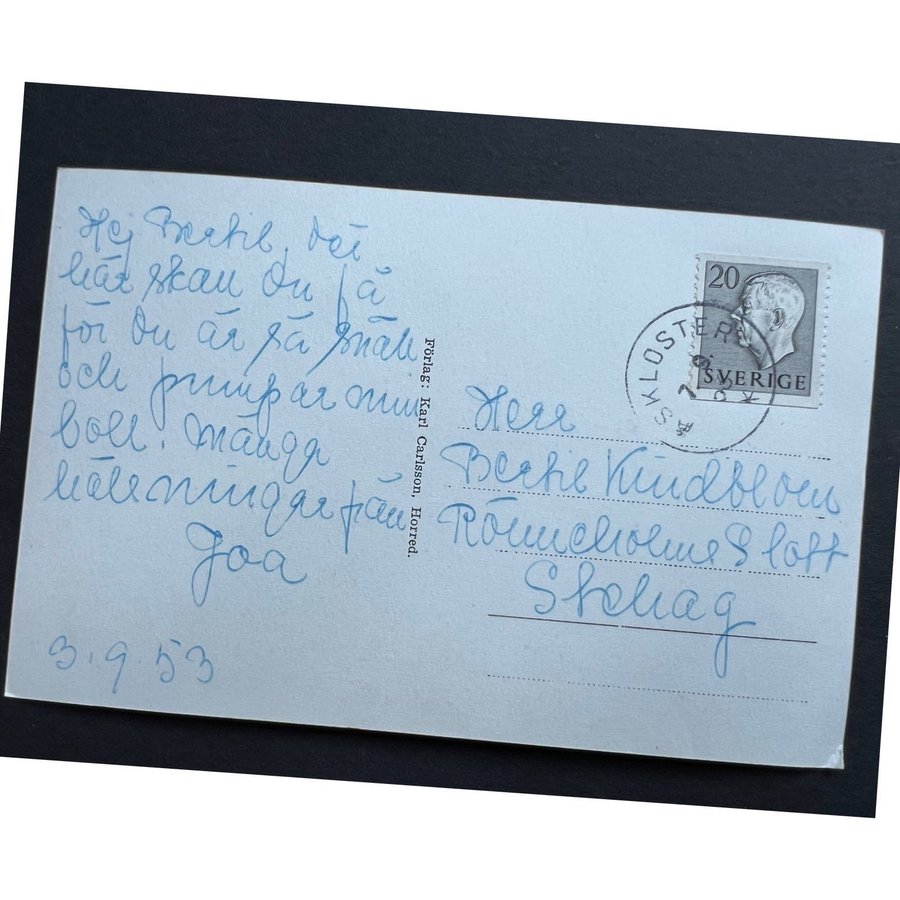 Hej Bertil, det
här skall du få
för du är så snäll
och pumpar min
boll. Många
hälsningar från
Joa
3.9.53
Förlag: Karl Carlsson, Horred.
20
SVERIGE
ÅSKLOSTER
Herr
Bertil Kindblom
Rönneholms Slott
Stehag